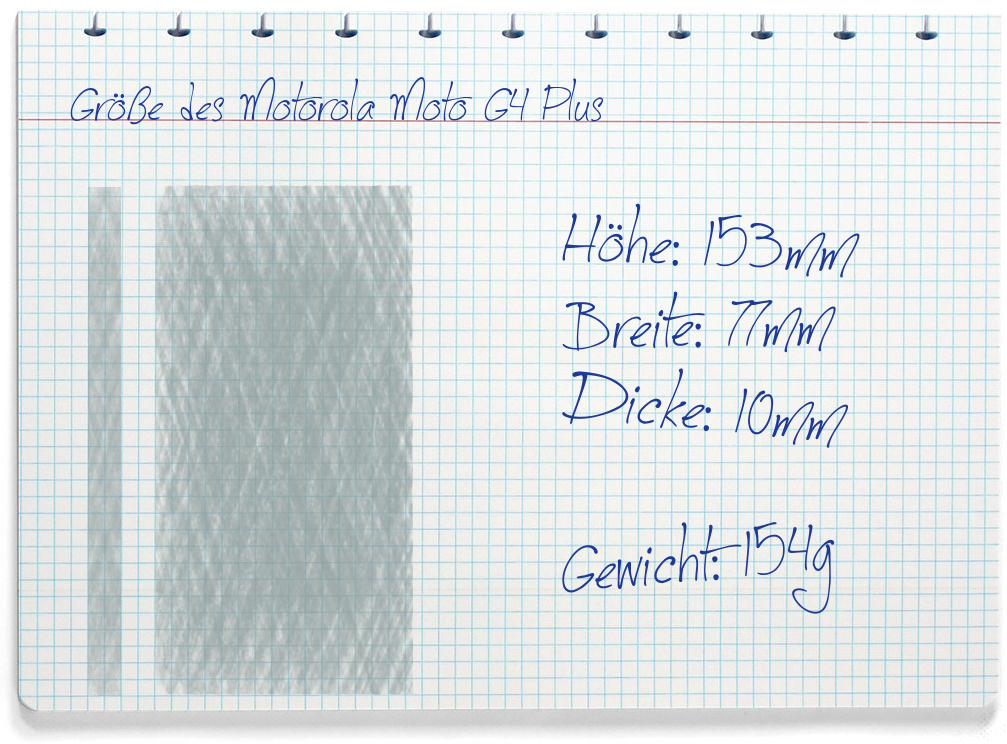 Größe des Motorola Moto G4 Plus
Höhe: 153mm
Breite: 77mm
Dicke: 10mm
Gewicht: 154g